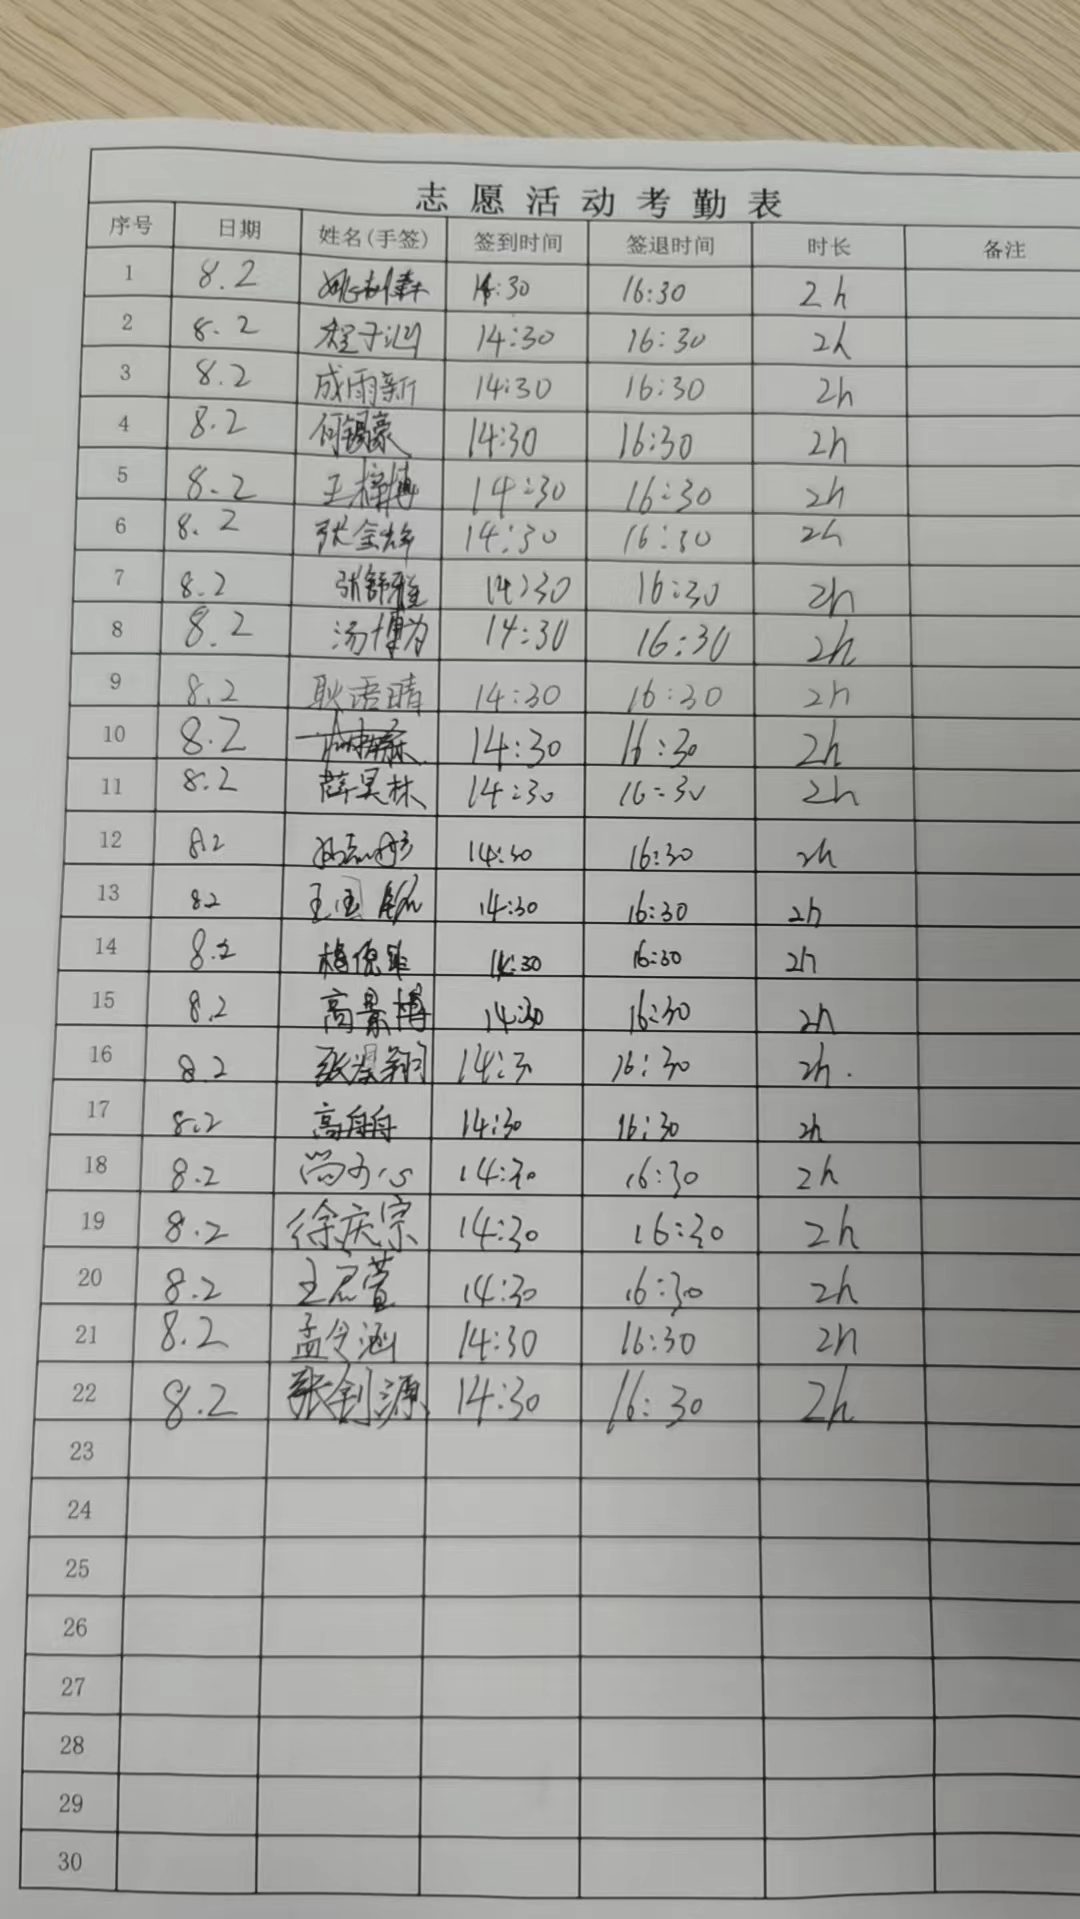 志愿活动考勤表
序号 日期 姓名(手签) 签到时间 签退时间 时长 备注
1 8.2 14:30 16:30 2h
2 8.2 程子涵 14:30 16:30 2h
3 8.2 成雨新 14:30 16:30 2h
4 8.2 何锡豪 14:30 16:30 2h
5 8.2 王梓博 14:30 16:30 2h
6 8.2 14:30 16:30 2h
7 8.2 张舒雅 14:30 16:30 2h
8 8.2 汤博为 14:30 16:30 2h
9 8.2 耿语晴 14:30 16:30 2h
10 8.2 14:30 16:30 2h
11 8.2 薛昊林 14:30 16:30 2h
12 8.2 14:30 16:30 2h
13 8.2 14:30 16:30 2h
14 8.2 14:30 16:30 2h
15 8.2 高景博 14:30 16:30 2h
16 8.2 14:3 16:30 2h.
17 8.2 14:30 16:30 2h
18 8.2 14:30 16:30 2h
19 8.2 徐庆宗 14:30 16:30 2h
20 8.2 王君萱 14:30 16:30 2h
21 8.2 孟令涵 14:30 16:30 2h
22 8.2 张钊源 14:30 16:30 2h
23
24
25
26
27
28
29
30